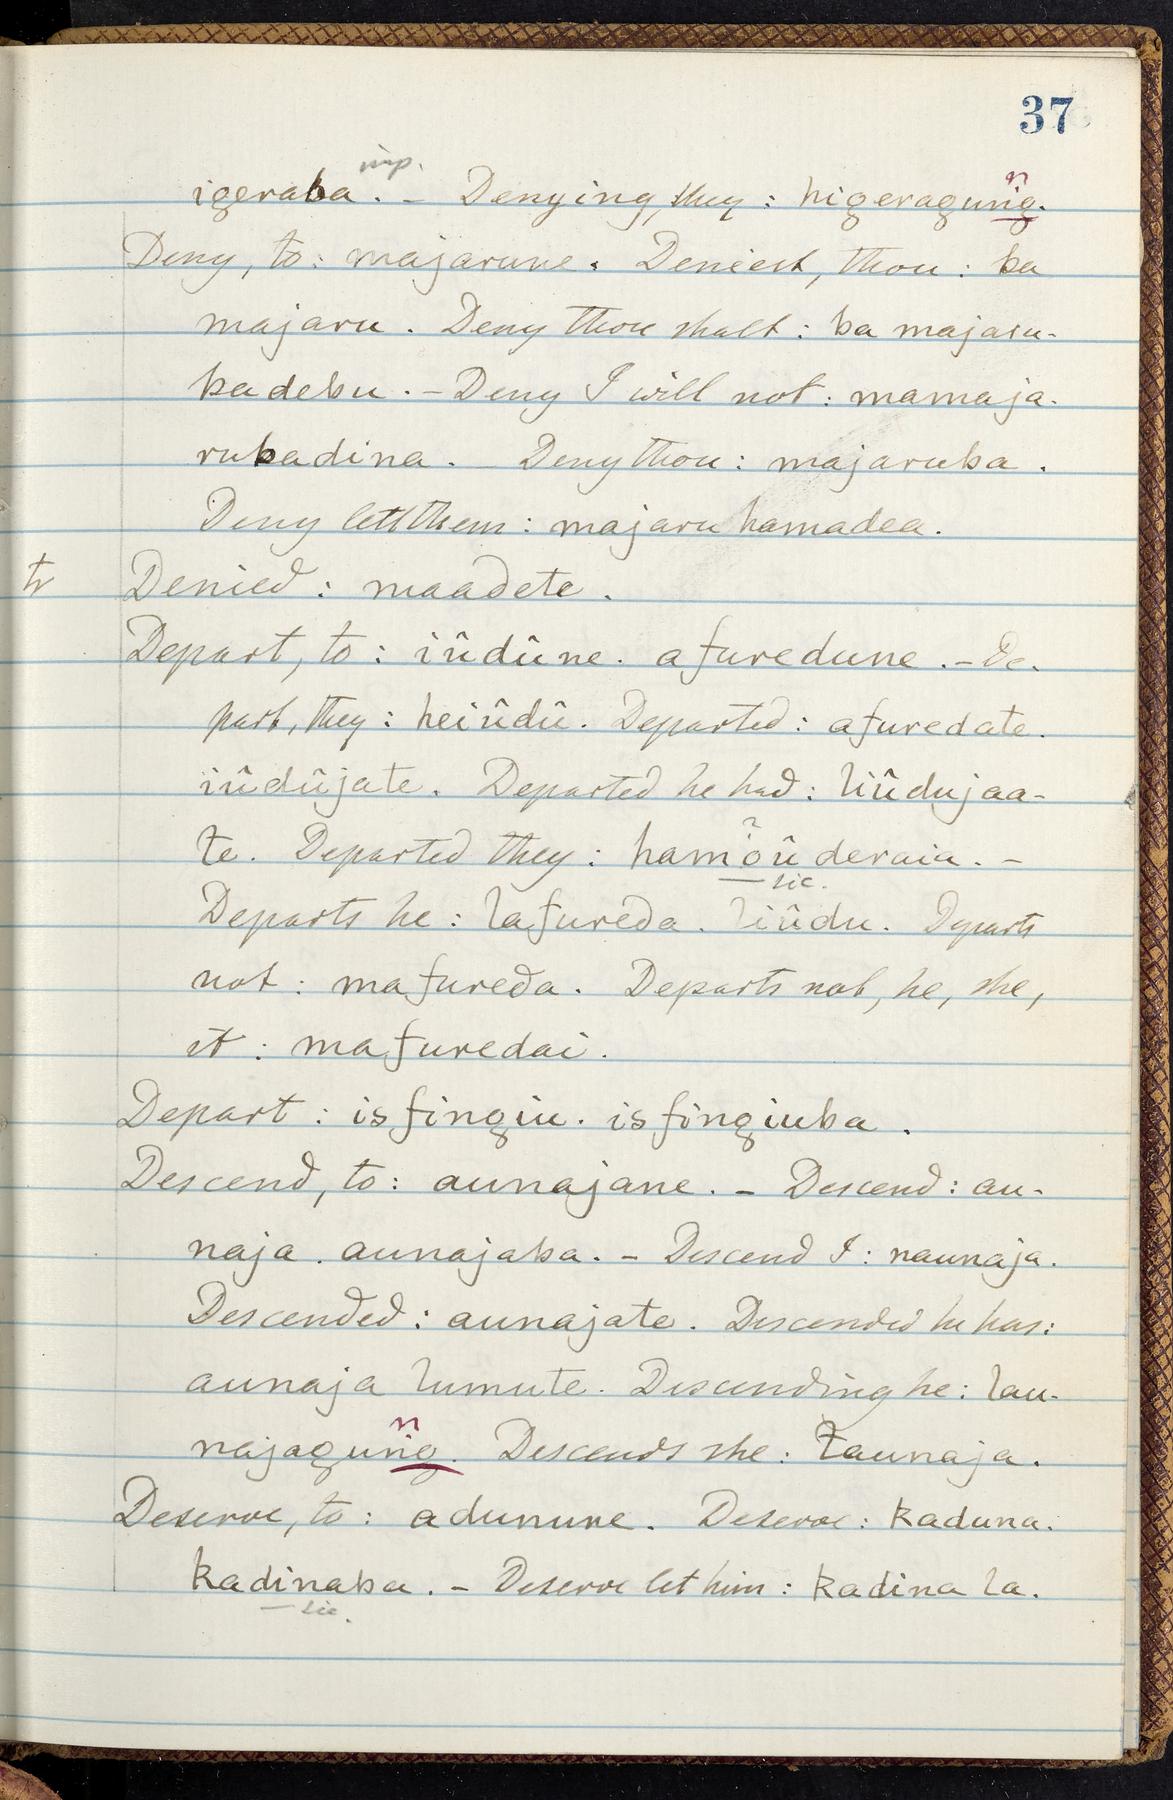 37
imp.
igeraba. - Denying, they: higeraguñg.
n
Deny, to: majarune. Deniest, thou: ba
majaru. Deny thou shalt: ba majaru-
badebu. - Deny I will not: mamaja-
rubadina. - Deny thou: majaruba.
Deny let them: majaru hamadea.
tr Denied: maadete.
Depart, to: iûdûne. afuredune. - De-
part, they: heiûdû. Departed: afuredate.
iûdûjate. Departed he had: liûdujaa-
te. Departed they: hamoû deraia. -
sic.
Departs he: lafureda. liûdu. Departs
not: mafureda. Departs not, he, she,
it: mafuredai.
Depart: isfingiu. isfingiuba.
Descend, to: aunajane. - Descend: au-
naja. aunajaba. - Descend I: naunaja.
Descended: aunajate. Descended he has:
aunaja lumute. Descending he: lau-
n
najaguñg. Descends she: taunaja.
Deserve, to: adunune. Deserve: kaduna.
kadinaba. - Deserve let him: kadina la.
sic.